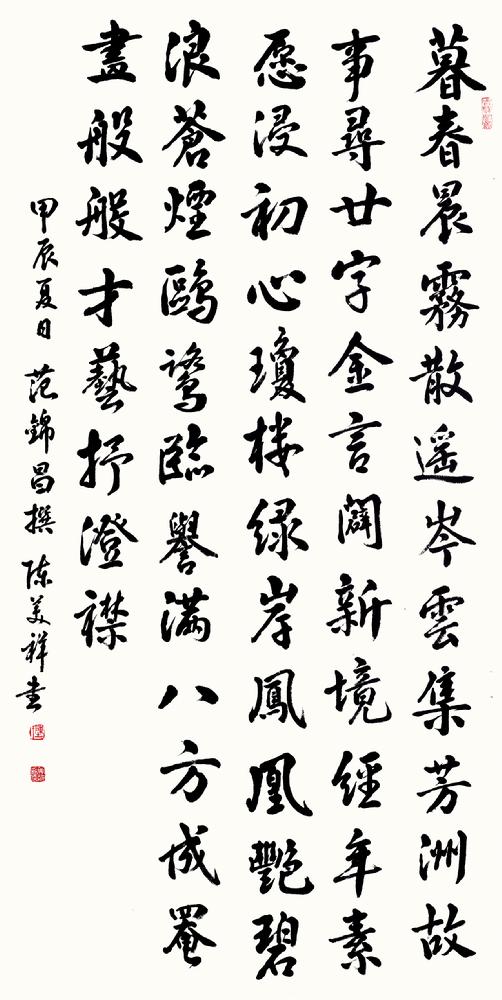 暮春晨霧散遥岑雲集芳洲故
事尋廿字金言闢新境經年素
愿浸初心瓊楼绿岸鳳凰艷碧
浪蒼煙鷗鷺臨譽满八方成罨
畫般般才藝抒澄襟
甲辰夏日 范錦昌撰 陈美祥书